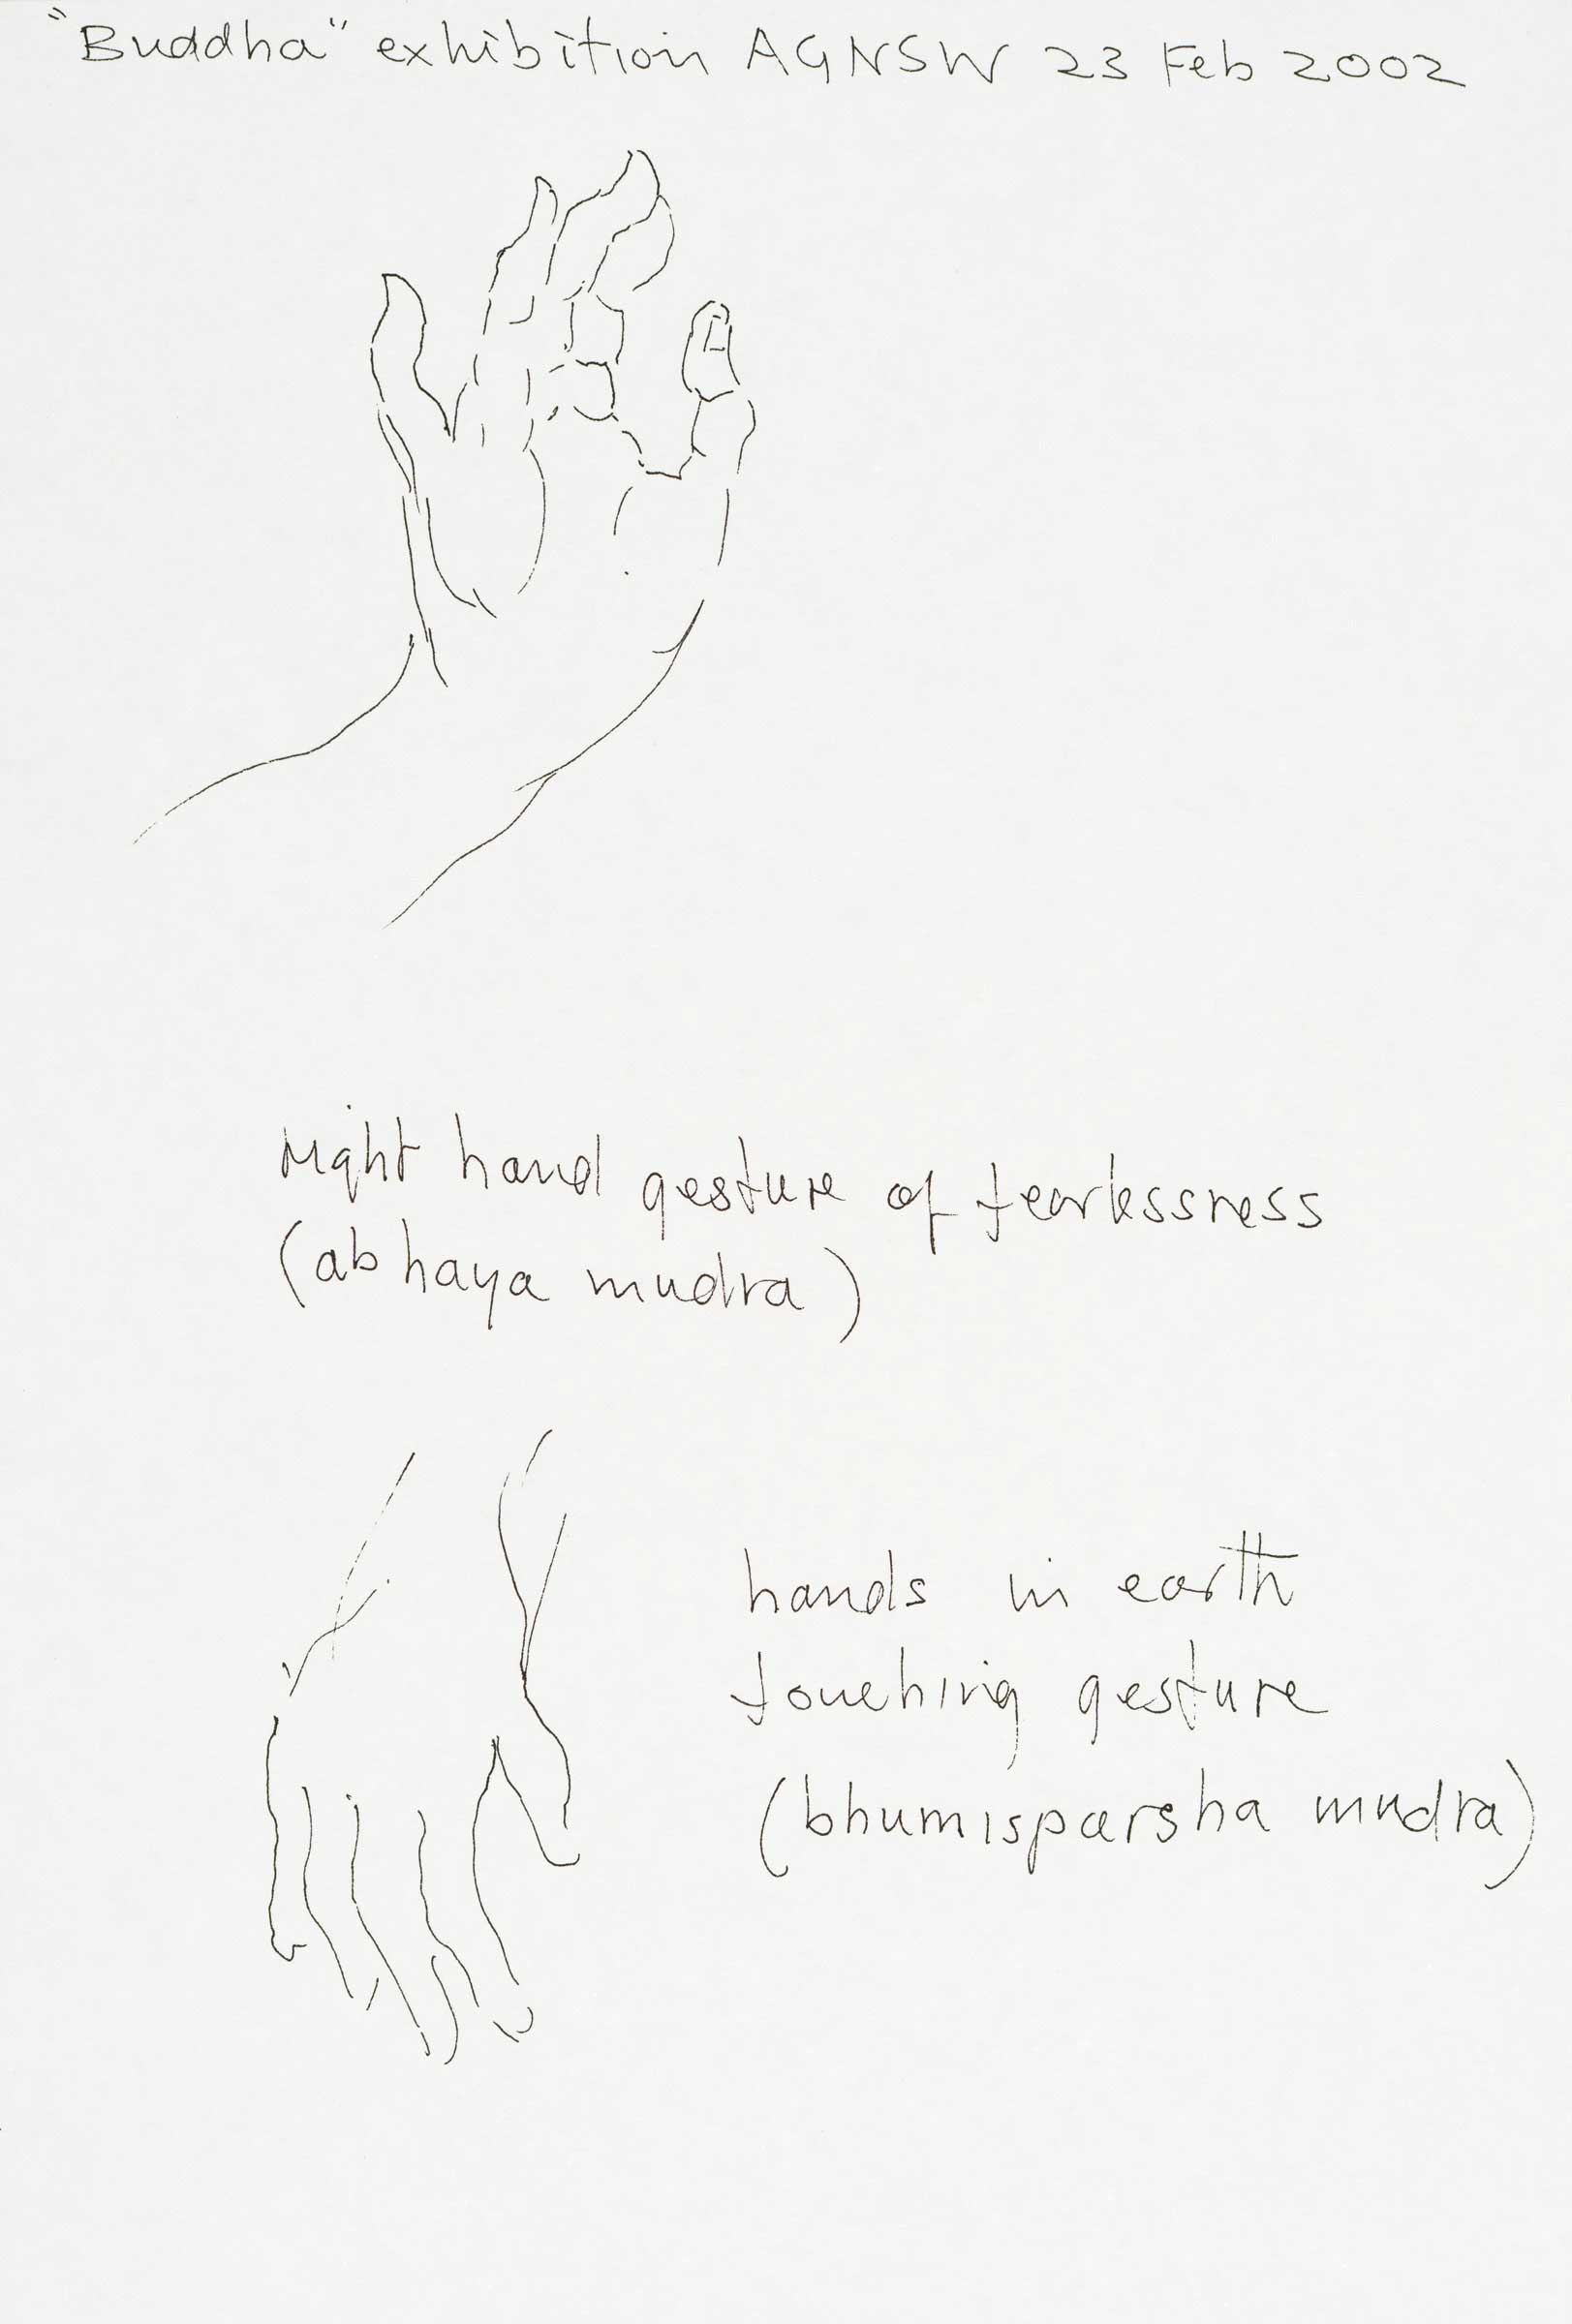 "Buddha" exhibition AGNSW 23 Feb 2002
right hand gesture of fearlessness
(abhaya mudra)
hands in earth
touching gesture
(bhumisparsha mudra)